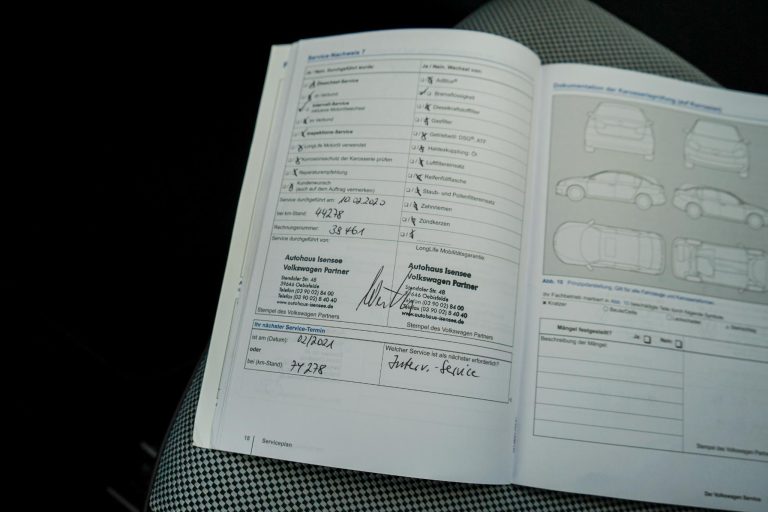 Service-Nachweis 7
Ja / Nein Durchgeführt wurde:
Ölwechsel-Service
im Verbund
Intervall-Service
inklusive Motorölwechsel
im Verbund
Inspektions-Service
LongLife Motoröl verwendet
Korrosionsschutz der Karosserie prüfen
Reparaturempfehlung
Kundenwunsch
(auch auf dem Auftrag vermerken)
Service durchgeführt am: 10.02.2020
bei km-Stand: 44278
Rechnungsnummer: 38461
Service durchgeführt von:
Autohaus Isensee
Volkswagen Partner
Stendaler Str. 4B
39646 Oebisfelde
Telefon (03 90 02) 84 00
Telefax (03 90 02) 8 40 40
www.autohaus-isensee.de
Stempel des Volkswagen Partners
Ja / Nein Wechsel von:
AdBlue®
Bremsflüssigkeit
Dieselkraftstofffilter
Gasfilter
Getriebeöl: DSG®, ATF
Haldexkupplung: Öl
Luftfiltereinsatz
Reifenfüllflasche
Staub- und Pollenfiltereinsatz
Zahnriemen
Zündkerzen
LongLife Mobilitätsgarantie
Autohaus Isensee
Volkswagen Partner
Stendaler Str. 4B
39646 Oebisfelde
Telefon (03 90 02) 84 00
Telefax (03 90 02) 8 40 40
www.autohaus-isensee.de
Stempel des Volkswagen Partners
Ihr nächster Service-Termin
ist am (Datum): 02/2021
oder
bei (km-Stand): 74278
Welcher Service ist als nächster erforderlich?
Interv.-Service
18
Serviceplan
Dokumentation der Karosserieprüfung (auf Korrosion)
Abb. 10 Prinzipdarstellung: Gilt für alle Fahrzeuge und Karosserieformen.
Ihr Fachbetrieb markiert in Abb. 10 beschädigte Teile durch folgende Symbole:
Kratzer
Beule/Delle
Mängel festgestellt?
Ja
Nein
Beschreibung der Mängel:
Stempel des Volkswagen Partners
Der Volkswagen Service